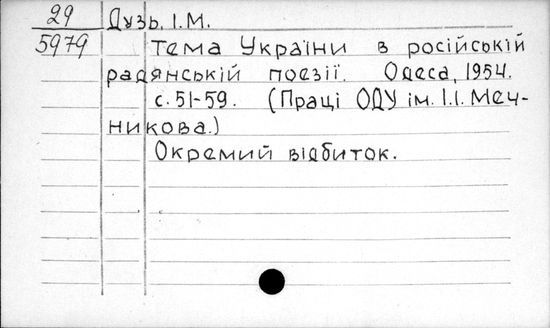 29
5979
Дузь, І.М.
Тема України в російській
радянській поезії. Одеса, 1954.
с. 51-59. (Праці ОДУ ім. І.І. Меч-
никова.)
Окремий відбиток.